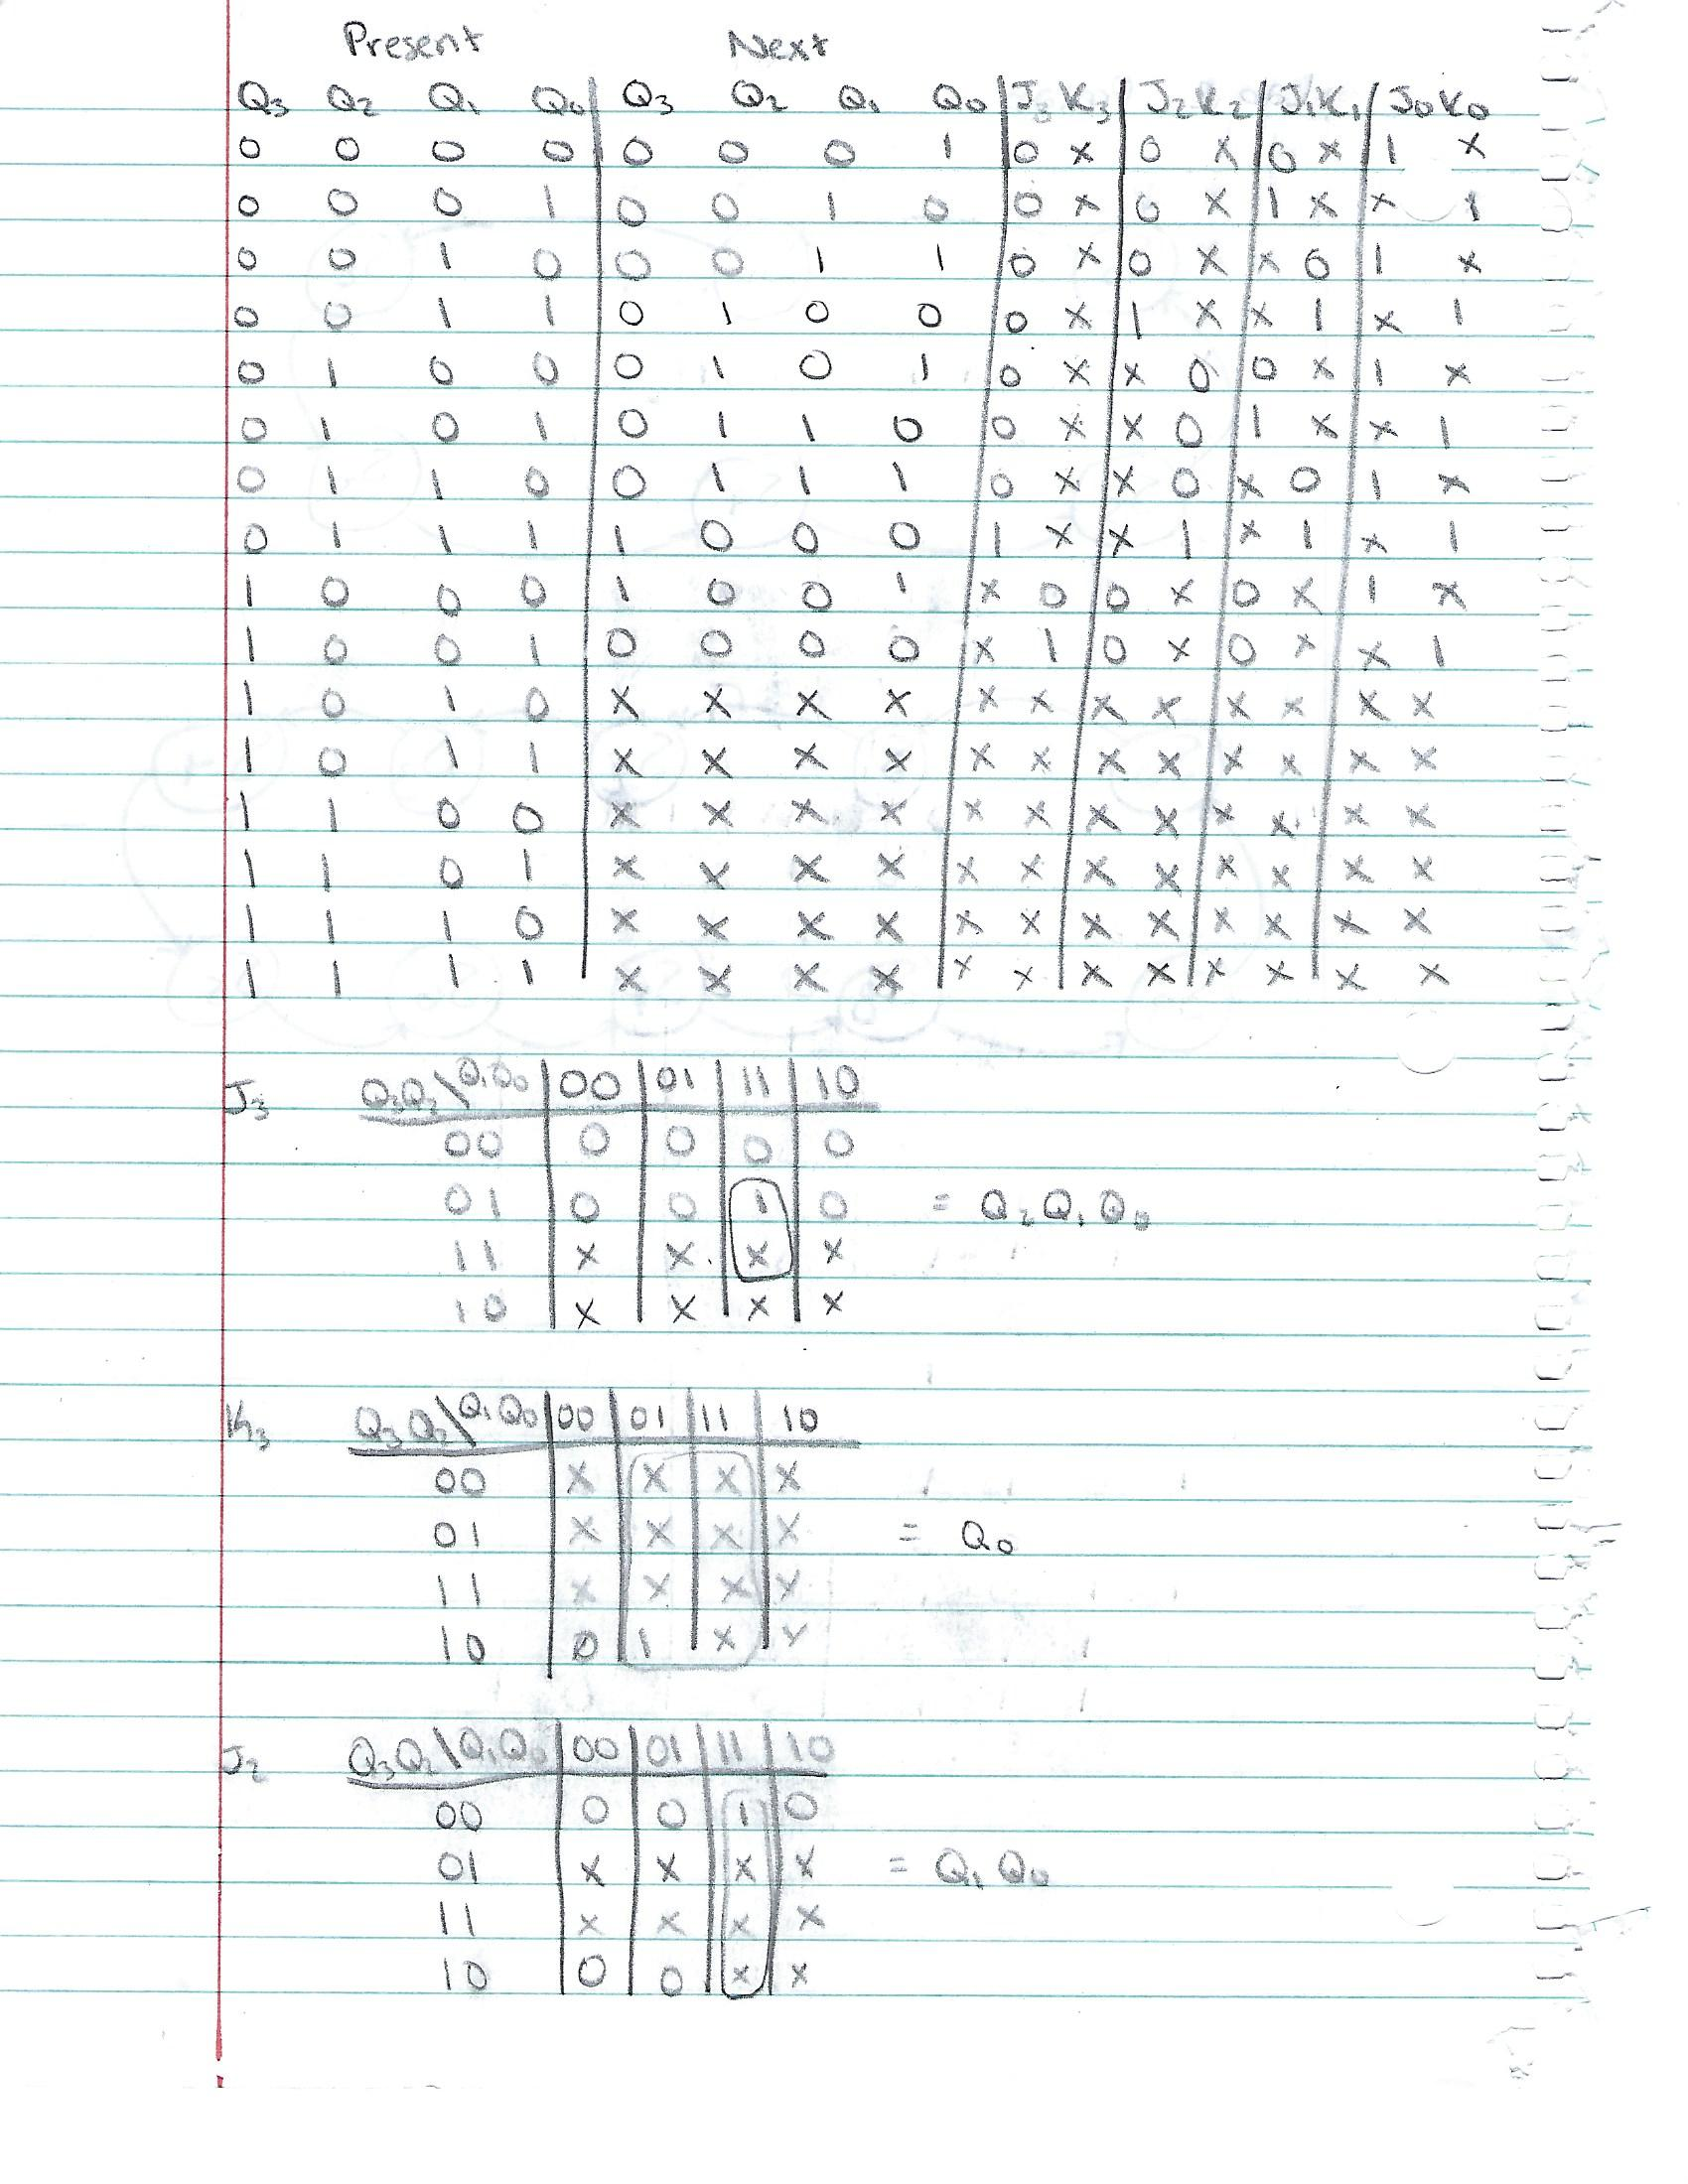 Present Next
Q3 Q2 Q1 Q0 Q3 Q2 Q1 Q0 J3 K3 J2 K2 J1 K1 J0 K0
0 0 0 0 0 0 0 1 0 x 0 x 0 x 1 x
0 0 0 1 0 0 1 0 0 x 0 x 1 x x 1
0 0 1 0 0 0 1 1 0 x 0 x x 0 1 x
0 0 1 1 0 1 0 0 0 x 1 x x 1 x 1
0 1 0 0 0 1 0 1 0 x x 0 0 x 1 x
0 1 0 1 0 1 1 0 0 x x 0 1 x x 1
0 1 1 0 0 1 1 1 0 x x 0 x 0 1 x
0 1 1 1 1 0 0 0 1 x x 1 x 1 x 1
1 0 0 0 1 0 0 1 x 0 0 x 0 x 1 x
1 0 0 1 0 0 0 0 x 1 0 x 0 x x 1
1 0 1 0 x x x x x x x x x x x x
1 0 1 1 x x x x x x x x x x x x
1 1 0 0 x x x x x x x x x x x x
1 1 0 1 x x x x x x x x x x x x
1 1 1 0 x x x x x x x x x x x x
1 1 1 1 x x x x x x x x x x x x
J3 Q3Q2\Q1Q0 00 01 11 10
00 0 0 0 0
01 0 0 1 0 = Q2 Q1 Q0
11 x x x x
10 x x x x
K3 Q3Q2\Q1Q0 00 01 11 10
00 x x x x
01 x x x x = Q0
11 x x x x
10 0 1 x x
J2 Q3Q2\Q1Q0 00 01 11 10
00 0 0 1 0
01 x x x x = Q1 Q0
11 x x x x
10 0 0 x x